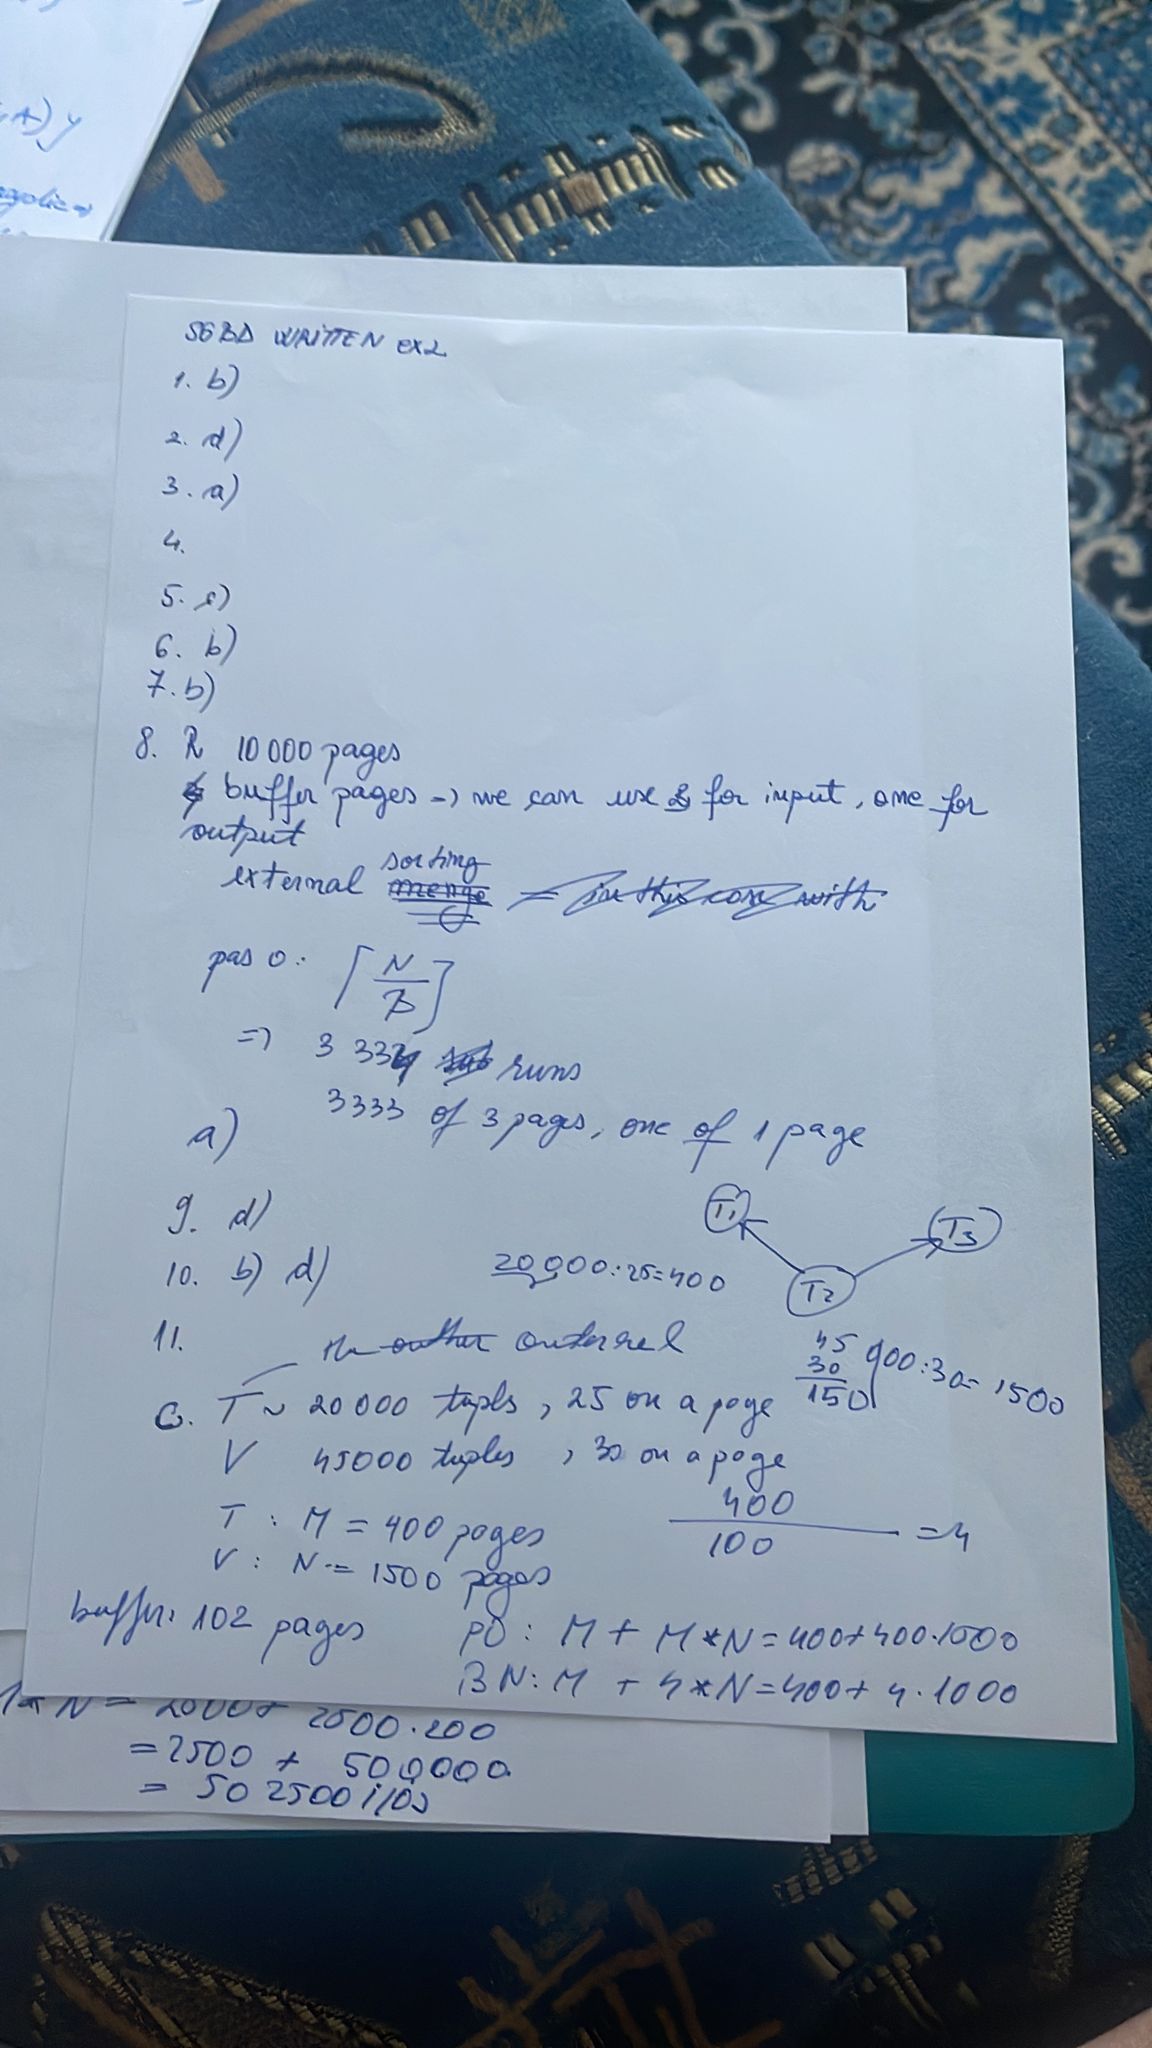 , A) y
SGBD WRITTEN ex2
1. b)
2. d)
3. a)
4.
5. c)
6. b)
7. b)
8. R 10 000 pages
buffer pages => we can use 2 for input, one for
output
external sorting merge = in this case with
pas 0: ⌈N/B⌉
=> 3 334 runs
3333 of 3 pages, one of 1 page
a)
T1
T3
9. d)
10. b) d)
20,000:25=400
T2
11.
the outher outerrel
45 000:30= 1500
30
150
C. T ~ 20 000 tuples, 25 on a page
V 45000 tuples, 30 on a page
T : M = 400 pages
400
100
=4
V : N = 1500 pages
buffer: 102 pages
PO: M + M*N=400+400.1000
BN: M + 4*N=400+4.1000
* N = 2000+ 2500.200
=2500 + 500,000
= 502500 i/os